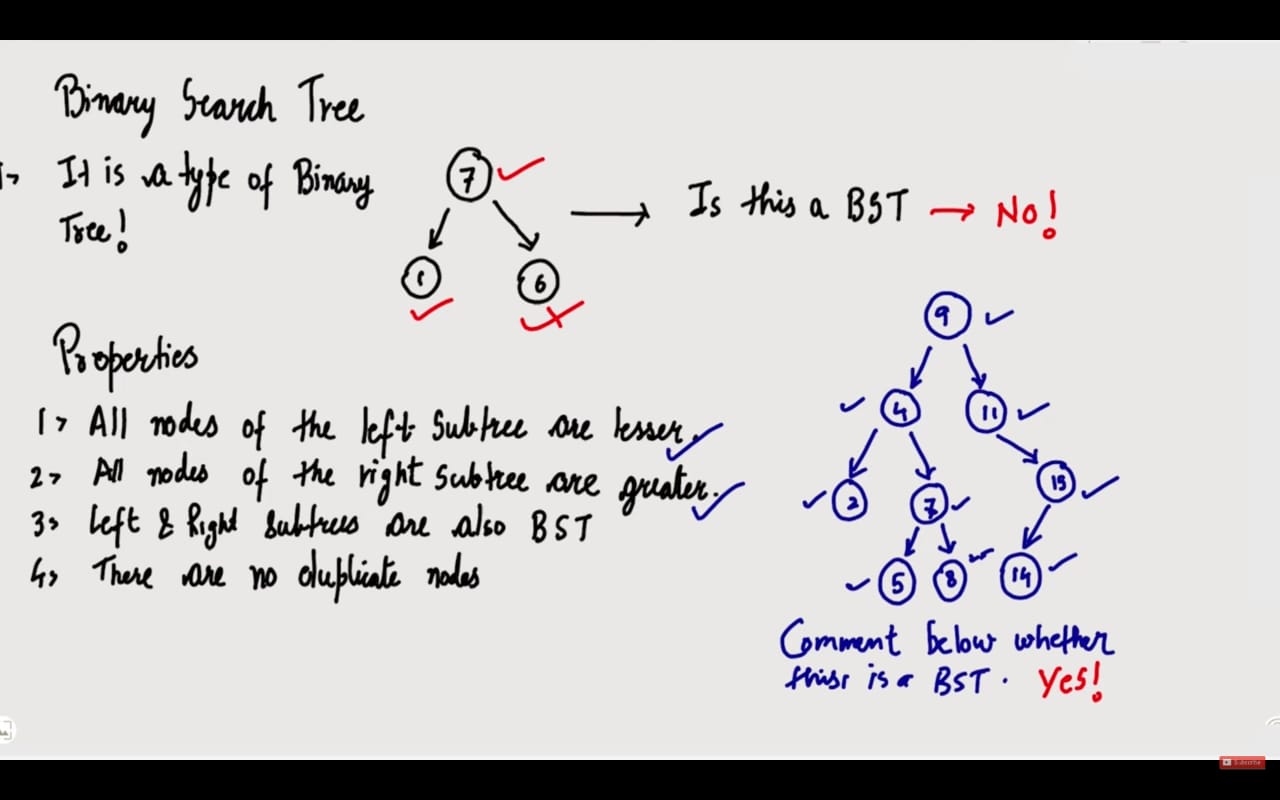 Binary Search Tree
1> It is a type of Binary
Tree!
7
1
6
Is this a BST → No!
Properties
1> All nodes of the left Subtree are lesser.
2> All nodes of the right subtree are greater.
3> Left & Right Subtrees are also BST
4> There are no duplicate nodes
9
4
11
2
7
15
5
8
14
Comment below whether
this is a BST. Yes!
Subscribe